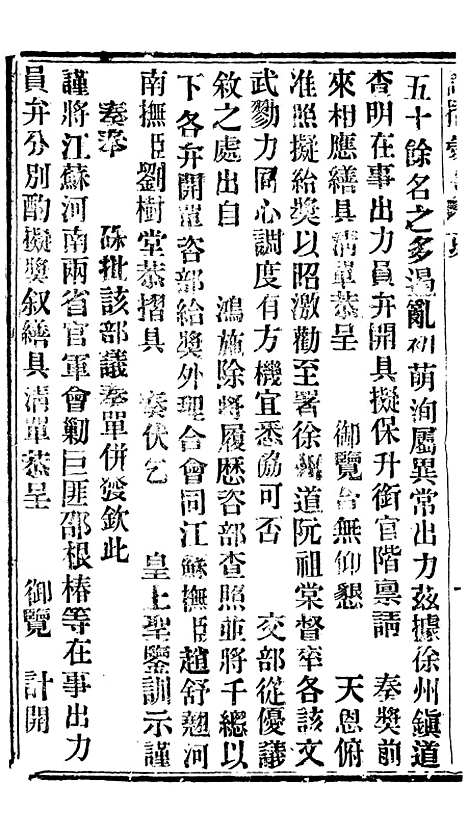 五十餘名之多遏亂初萌洵屬異常出力茲據徐州鎭道
查明在事出力員弁開具擬保升銜官階禀請 奏獎前
來相應繕具淸單恭呈 御覽合無仰懇 天恩俯
准照擬給獎以昭激勸至署徐州道阮祖棠督率各該文
武勠力同心調度有方機宜悉協可否 交部從優議
敘之處出自 鴻施除將履歷咨部查照並將千總以
下各弁開單咨部給獎外理合會同江蘇撫臣趙舒翹河
南撫臣劉樹堂恭摺具 奏伏乞 皇上聖鑒訓示謹
奏奉 硃批該部議奏單併發欽此
謹將江蘇河南兩省官軍會勦巨匪邵根椿等在事出力
員弁分別酌擬獎叙繕具淸單恭呈 御覽 計開